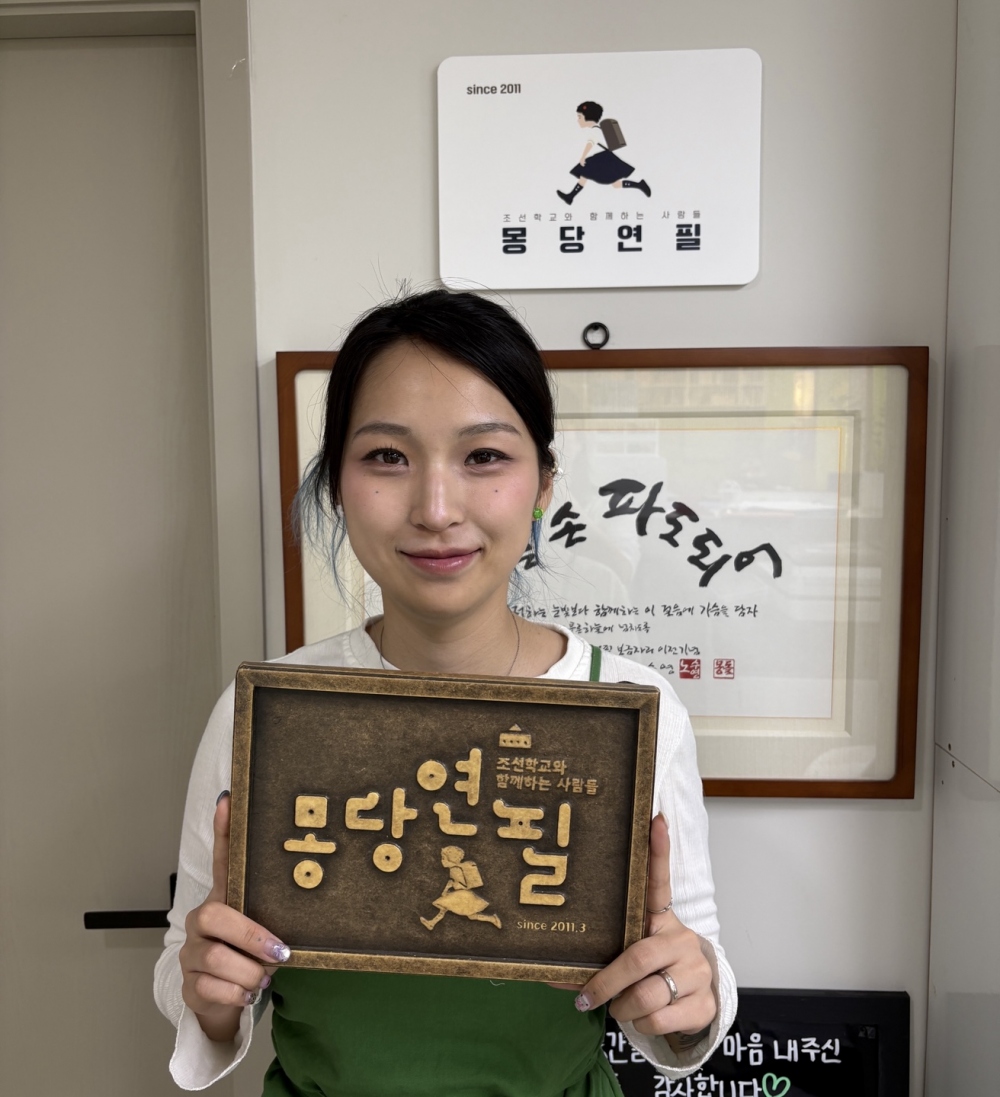 since 2011
조선학교와 함께하는 사람들
몽당연필
손 파도되어
눈빛보다 함께하는 이 걸음에 가슴을 담자
푸른하늘에 넘치도록
이전기념
조선학교와
함께하는 사람들
몽당연필
since 2011.3
마음 내주신
감사합니다